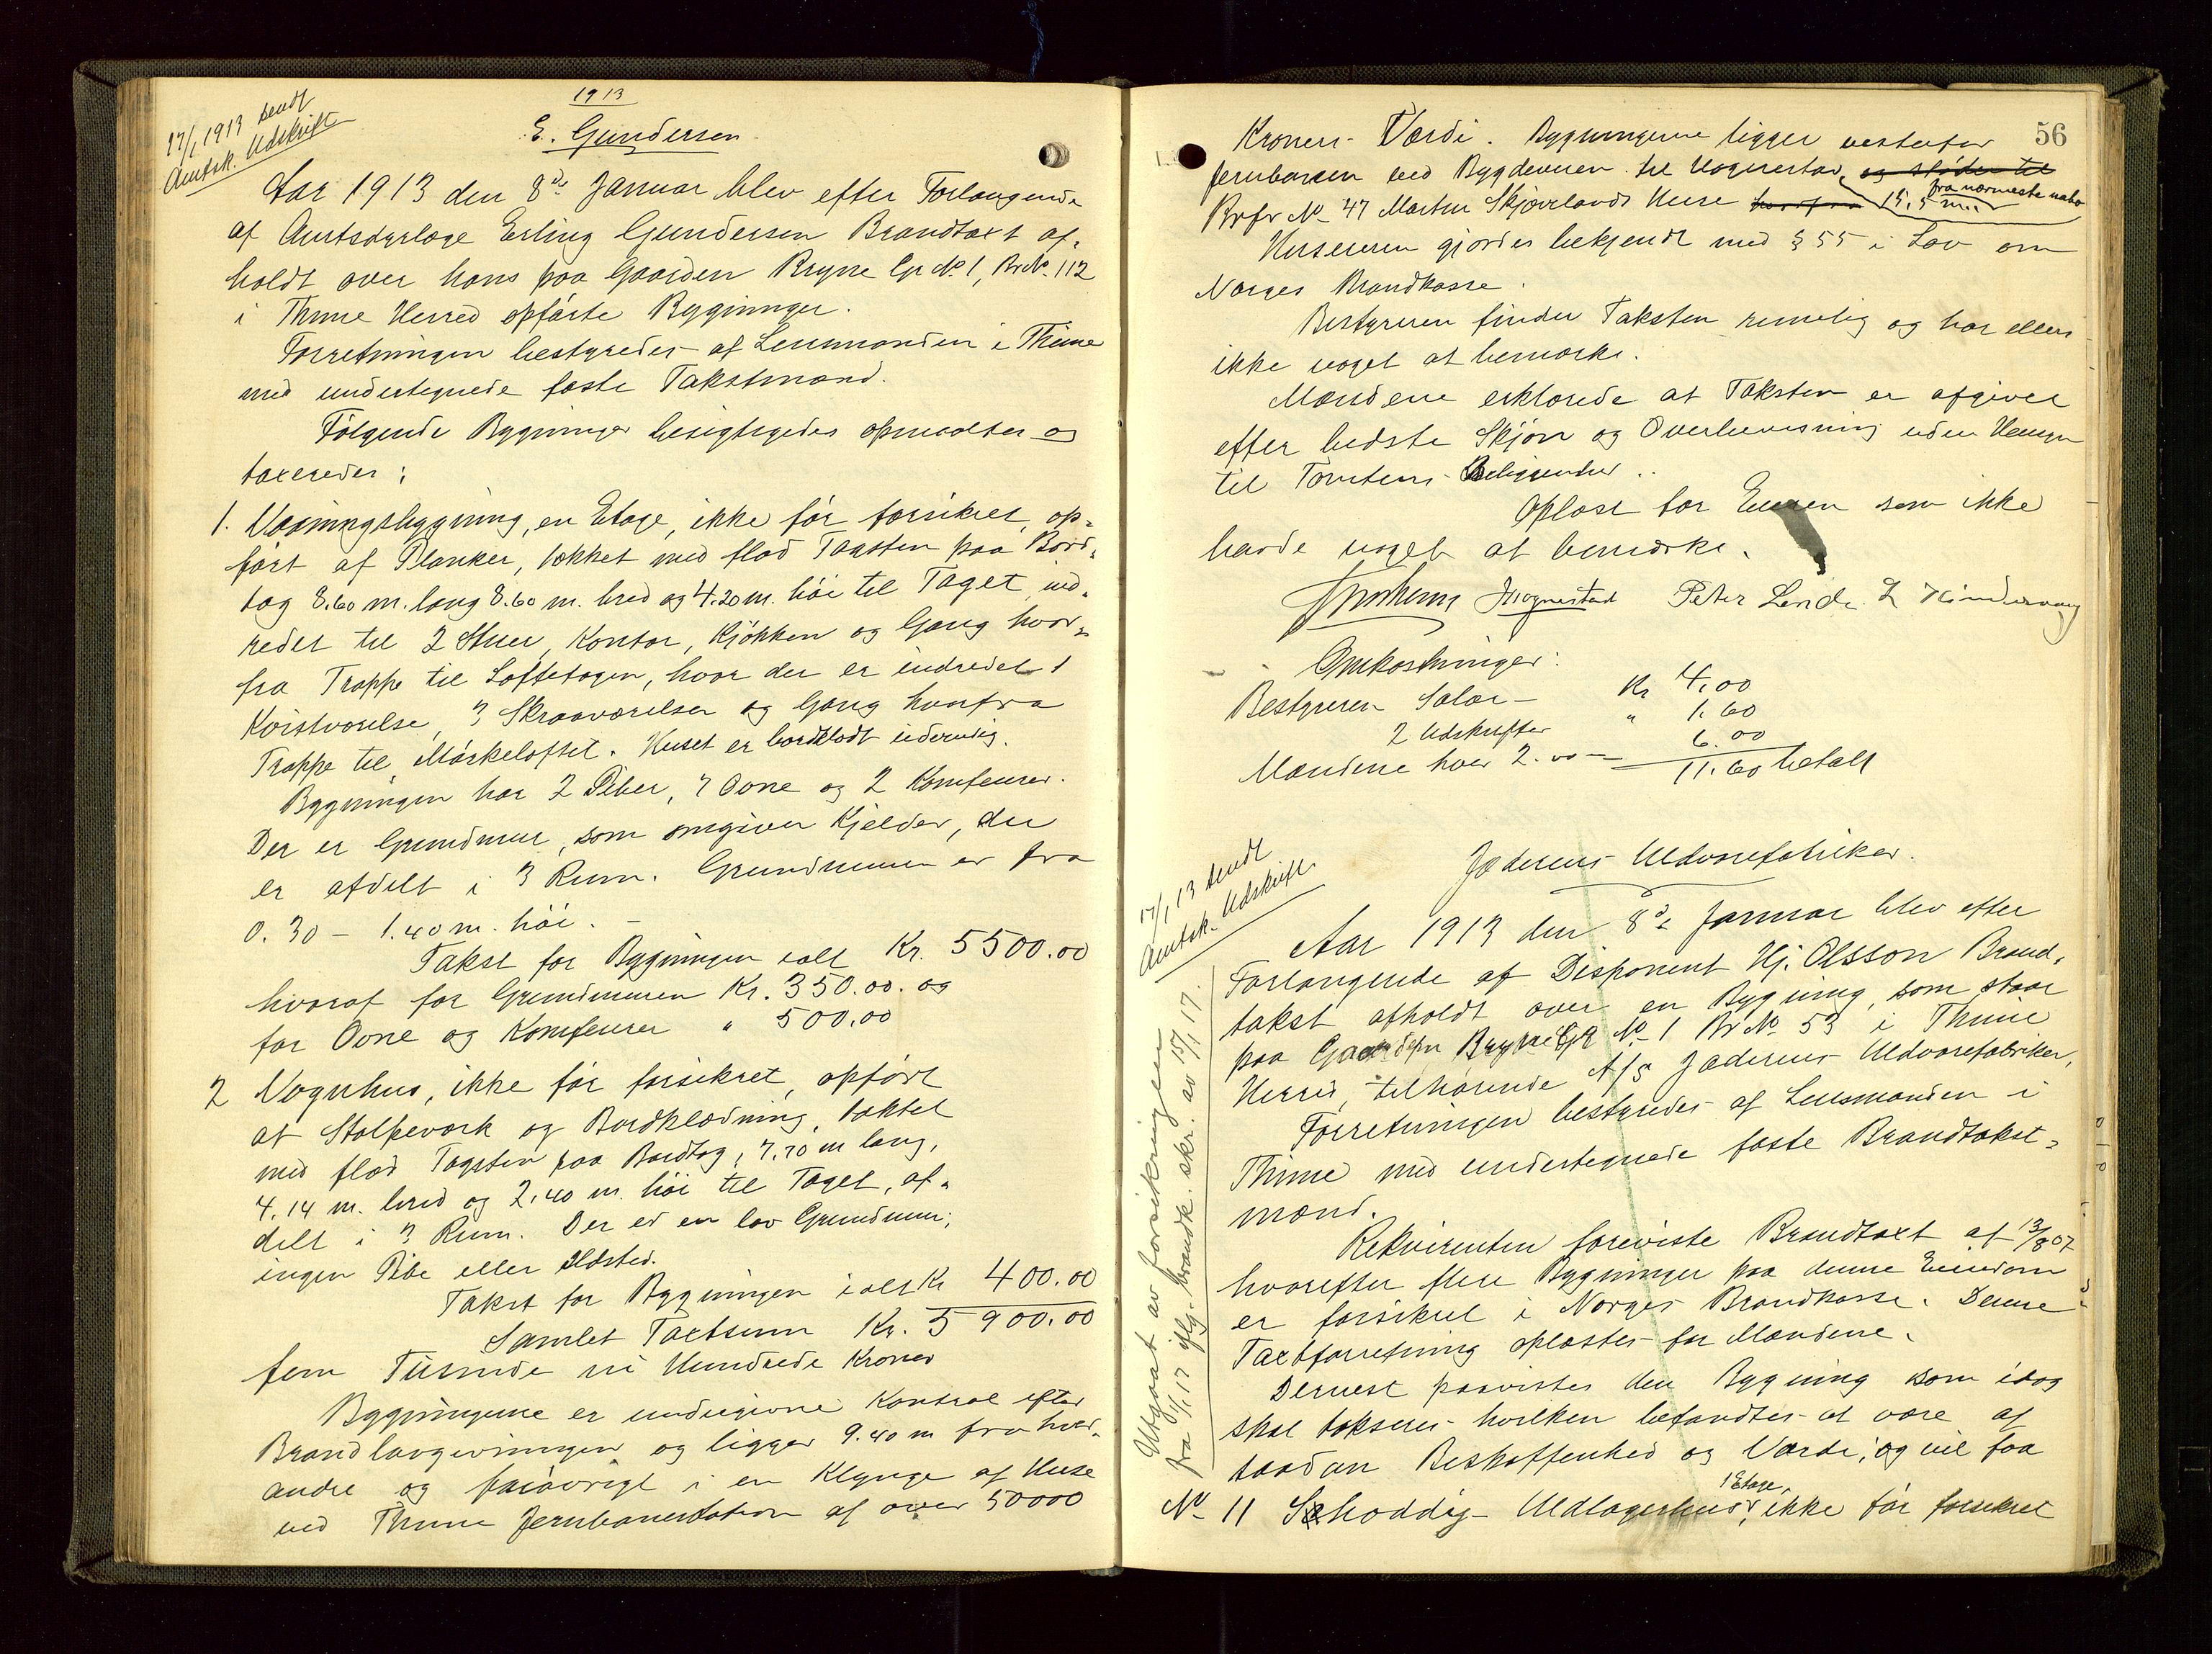 1913
17/1 1913 sendt
Amtsk. Udskrift
E. Gundersen
Aar 1913 den 8de Januar blev efter Forlangende
af Amtsdyrlæge Erling Gundersen Brandtaxt af-
holdt over hans paa Gaarden Bryne Gr No 1, Br No. 112
i Thime Herred opførte Bygninger.
Forretningen bestyredes af Lensmanden i Thime
med undertegnede faste Takstmænd.
Følgende Bygninger besigtigedes opmaaltes og
taxeredes:
1. Vaaningsbygning, en Etage, ikke før forsikret, op-
ført af Planker, tækket med flad Tagsten paa Bord-
tag 8.60 m. lang 8.60 m. bred og 4.20 m. høi til Taget, ind-
redet til 2 Stuer, Kontor, Kjøkken og Gang hvor-
fra Trappe til Loftetagen, hvor der er indredet 1
Kvistværelse, 3 Skraaværelser og Gang hvorfra
Trappe til Mørkeloftet. Huset er bordklædt udvendig.
Bygningen har 2 Piber, 7 Ovne og 2 Komfeurer.
Der er Grundmur, som omgiver Kjelder, der
er afdelt i 3 Rum. Grundmuren er fra
0.30 - 1.40 m. høi. -
Takst for Bygningen ialt Kr. 5500.00
hvoraf for Grundmuren Kr. 350.00. og
for Ovne og Komfeurer " 500.00
2 Vognhus, ikke før forsikret, opført
af Stolpeværk og Bordklædning, tæktet
med flad Tagsten paa Bordtag, 7.70 m lang,
4.14 m. bred og 2.40 m. høi til Taget, af-
delt i 3 Rum. Der er en lav Grundmur,
ingen Pibe eller Ildsted.
Takst for Bygningen ialt Kr 400.00
Samlet Taxtsum Kr. 5900.00
fem Tusinde ni Hundrede Kroner
Bygningerne er undergivne Kontrol efter
Brandlovgivningen og ligger 9.40 m fra hver-
andre og forøvrigt i en Klynge af Huse
ved Thime Jernbanestation af over 50000
56
Kroners Værdi. Bygningerne ligger vestenfor
Jernbanen ved Bygdeveien til Hognestad, og støder til
Brfr No 47 Morten Skjævelands Huse 15,5 m. fra nærmeste nabo
Huseieren gjordes bekjendt med § 55 i Lov om
Norges Brandkasse.
Bestyreren finder Taksten rimelig og har ellers
ikke noget at bemærke.
Mændene erklærede at Taksten er afgivet
efter bedste Skjøn og Overbevisning uden Hensyn
til Tomtens Beliggenhed.
Oplæst for Eieren som ikke
havde noget at bemærke.
Hognestad Peter Lende
Omkostninger:
Bestyreren Salær - Kr 4.00
2 Udskrifter " 1.60
Mændene hver 2.00 - 6.00
11.60 betalt
17/1 13 sendt
Amtsk. Udskrift
Jæderens Uldvarefabriker.
Aar 1913 den 8de Januar blev efter
Forlangende af Disponent Hj. Olsson Brand-
takst afholdt over en Bygning, som staar
paa Gaarden Bryne Gr No 1 Br No 53 i Thime
Herred, tilhørende A/S Jæderens Uldvarefabriker,
Forretningen bestyredes af Lensmanden i
Thime med undertegnede faste Brandtakst-
mænd.
Rekvirenten foreviste Brandtaxt af 13/8 07
hvorefter flere Bygninger paa denne Eiendom
er forsikret i Norges Brandkasse. Denne
Taxtforretning oplæstes for Mændene.
Dernest paavistes den Bygning som idag
skal takseres hvilken befandtes at være af
saadan Beskaffenhed og Værdi, og vil faa
No 11 Shoddy- Uldlagerhus, 1 Etage, ikke før forsikret
Utgaat av forsikringen
fra 1/1 17 iflg. brandk. skr. av 15/1 17.